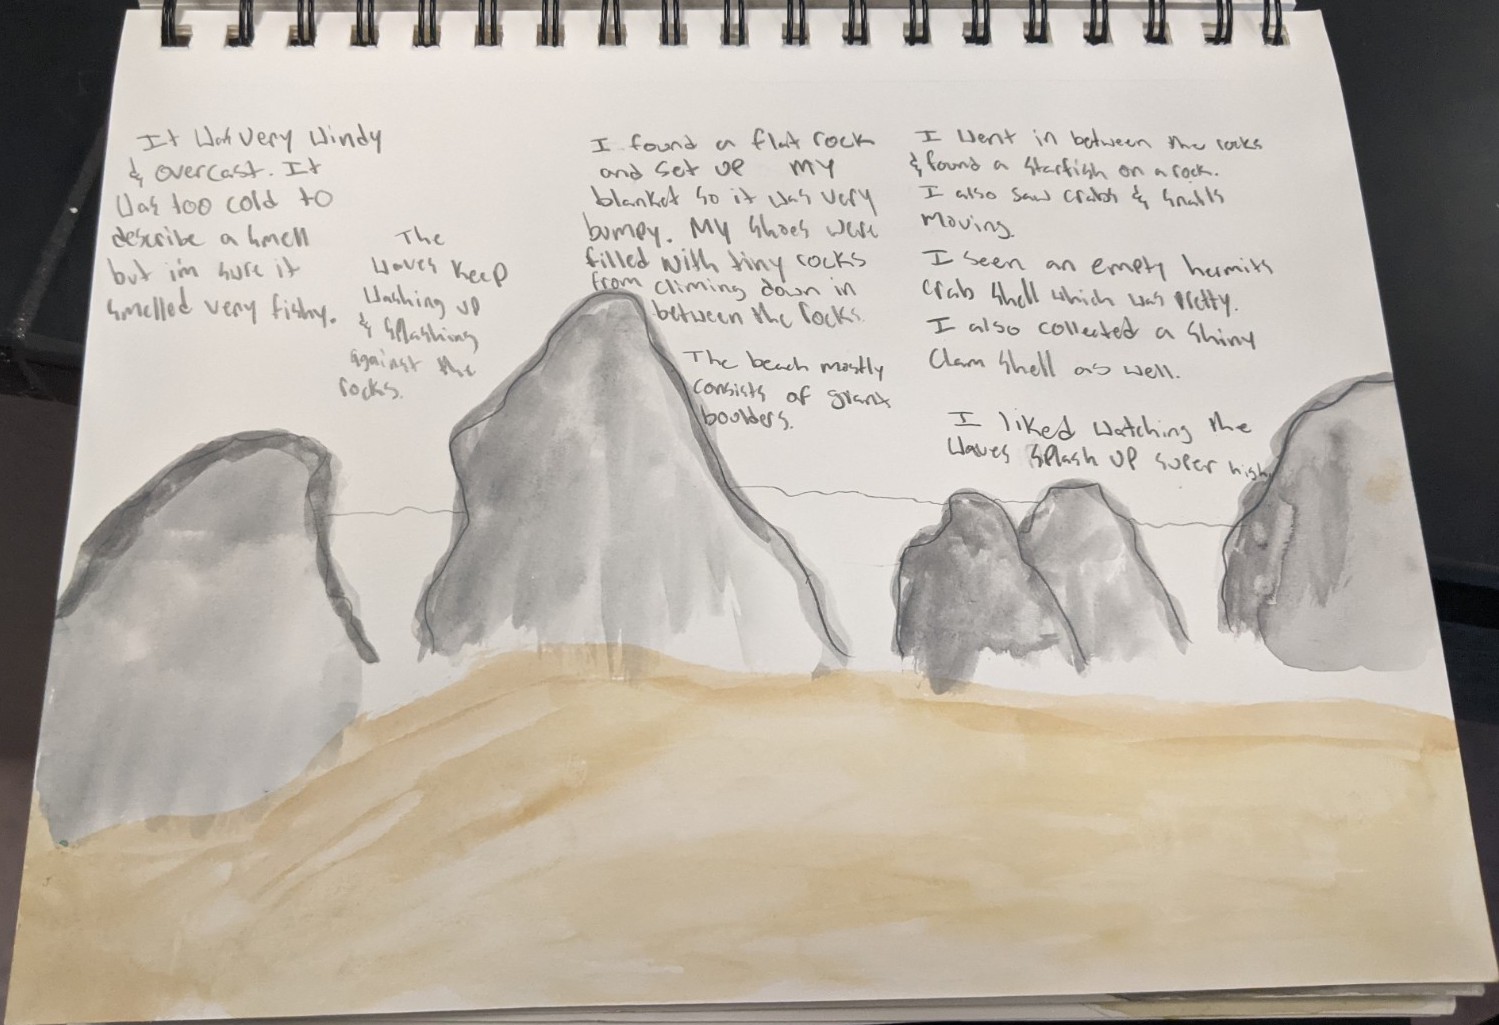 It was very windy
& overcast. It
was too cold to
describe a smell
but im sure it
smelled very fishy.
The
waves keep
washing up
& splashing
against the
rocks.
I found a flat rock
and set up my
blanket so it was very
bumpy. My shoes were
filled with tiny rocks
from climing down in
between the rocks.
The beach mostly
consists of giant
boulders.
I went in between the rocks
& found a starfish on a rock.
I also saw crabs & snails
moving.
I seen an empty hermits
crab shell which was pretty.
I also collected a shiny
clam shell as well.
I liked watching the
waves splash up super high.